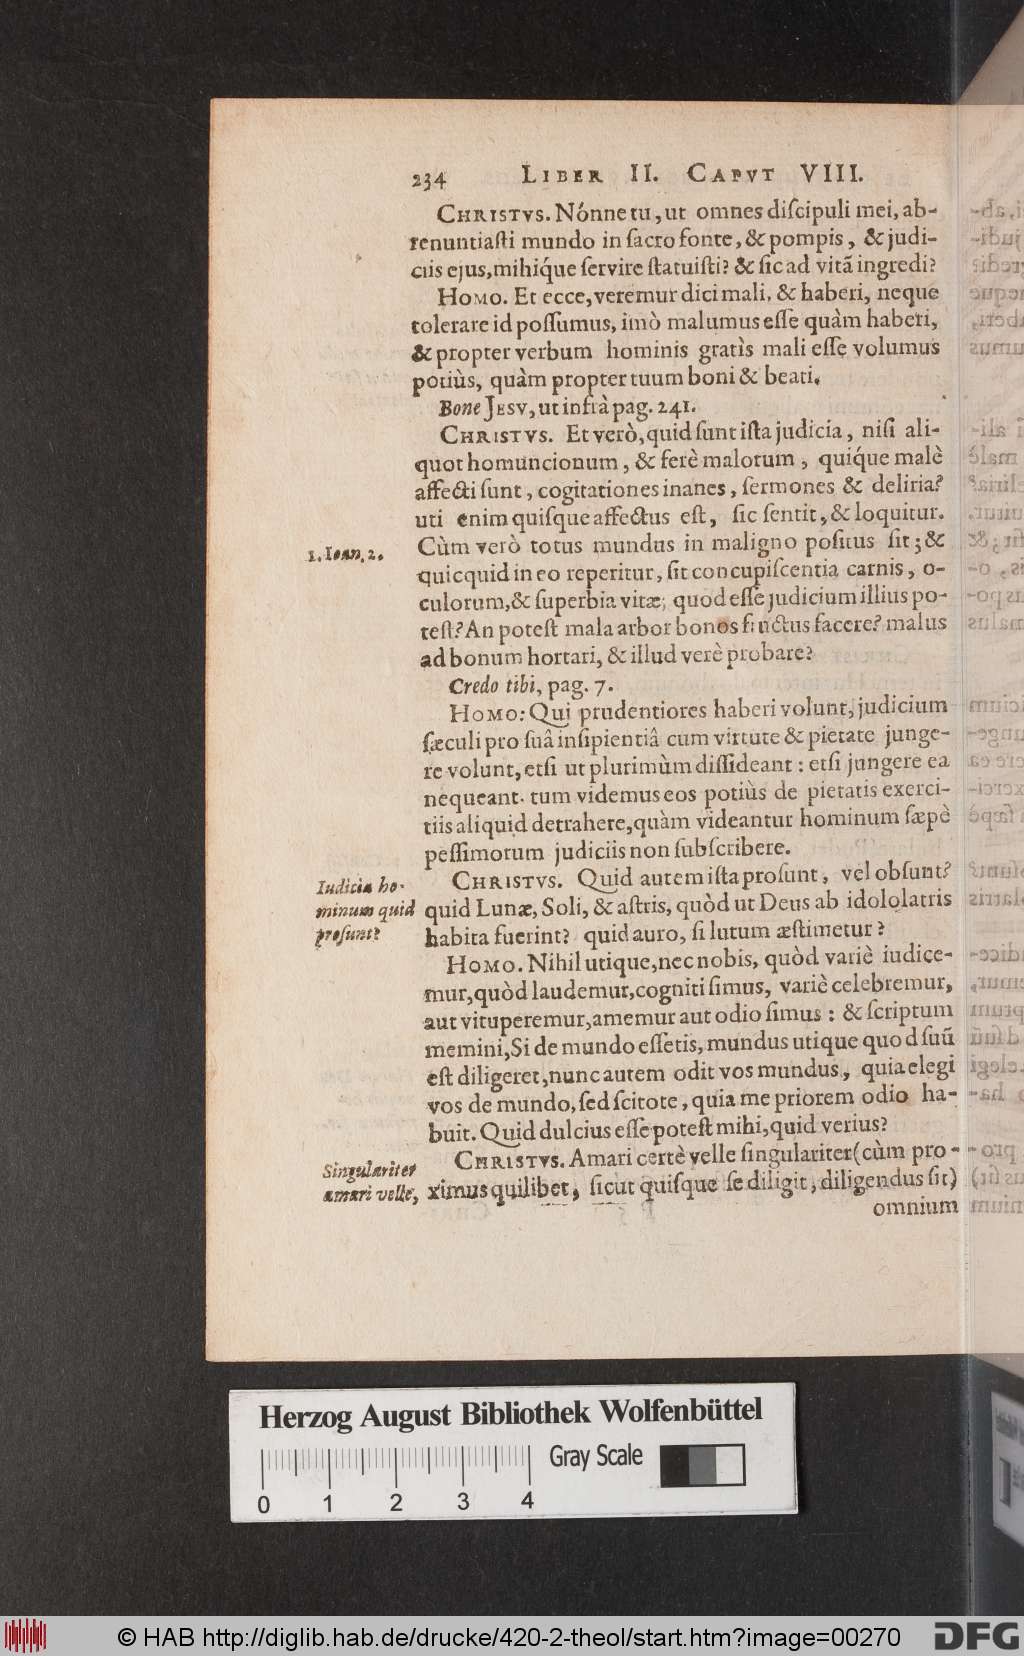 234 LIBER II. CAPVT VIII.
CHRISTVS. Nónne tu, ut omnes discipuli mei, ab-
renuntiasti mundo in sacro fonte, & pompis, & judi-
ciis ejus, mihíque servire statuisti? & sic ad vitã ingredi?
HOMO. Et ecce, veremur dici mali, & haberi, neque
tolerare id possumus, imò malumus esse quàm haberi,
& propter verbum hominis gratìs mali esse volumus
potiùs, quàm propter tuum boni & beati.
Bone JESV, ut infrà pag. 241.
CHRISTVS. Et verò, quid sunt ista judicia, nisi ali-
quot homuncionum, & ferè malorum, quíque malè
affecti sunt, cogitationes inanes, sermones & deliria?
uti enim quisque affectus est, sic sentit, & loquitur.
1. Ioan. 2.
Cùm verò totus mundus in maligno positus sit; &
quicquid in eo reperitur, sit concupiscentia carnis, o-
culorum, & superbia vitæ; quod esse judicium illius po-
test? An potest mala arbor bonos fructus facere? malus
ad bonum hortari, & illud verè probare?
Credo tibi, pag. 7.
HOMO: Qui prudentiores haberi volunt, judicium
sæculi pro suâ insipientiâ cum virtute & pietate junge-
re volunt, etsi ut plurimùm dissideant: etsi jungere ea
nequeant. tum videmus eos potiùs de pietatis exerci-
tiis aliquid detrahere, quàm videantur hominum sæpè
pessimorum judiciis non subscribere.
Iudicia ho-
minum quid
prosunt?
CHRISTVS. Quid autem ista prosunt, vel obsunt?
quid Lunæ, Soli, & astris, quòd ut Deus ab idololatris
habita fuerint? quid auro, si lutum æstimetur?
HOMO. Nihil utique, nec nobis, quòd variè iudice-
mur, quòd laudemur, cogniti simus, variè celebremur,
aut vituperemur, amemur aut odio simus: & scriptum
memini, Si de mundo essetis, mundus utique quod suũ
est diligeret, nunc autem odit vos mundus, quia elegi
vos de mundo, sed scitote, quia me priorem odio ha-
buit. Quid dulcius esse potest mihi, quid verius?
Singulariter
amari velle,
CHRISTVS. Amari certè velle singulariter (cùm pro-
ximus quilibet, sicut quisque se diligit, diligendus sit)
omnium
Herzog August Bibliothek Wolfenbüttel
Gray Scale
0 1 2 3 4
© HAB http://diglib.hab.de/drucke/420-2-theol/start.htm?image=00270
DFG